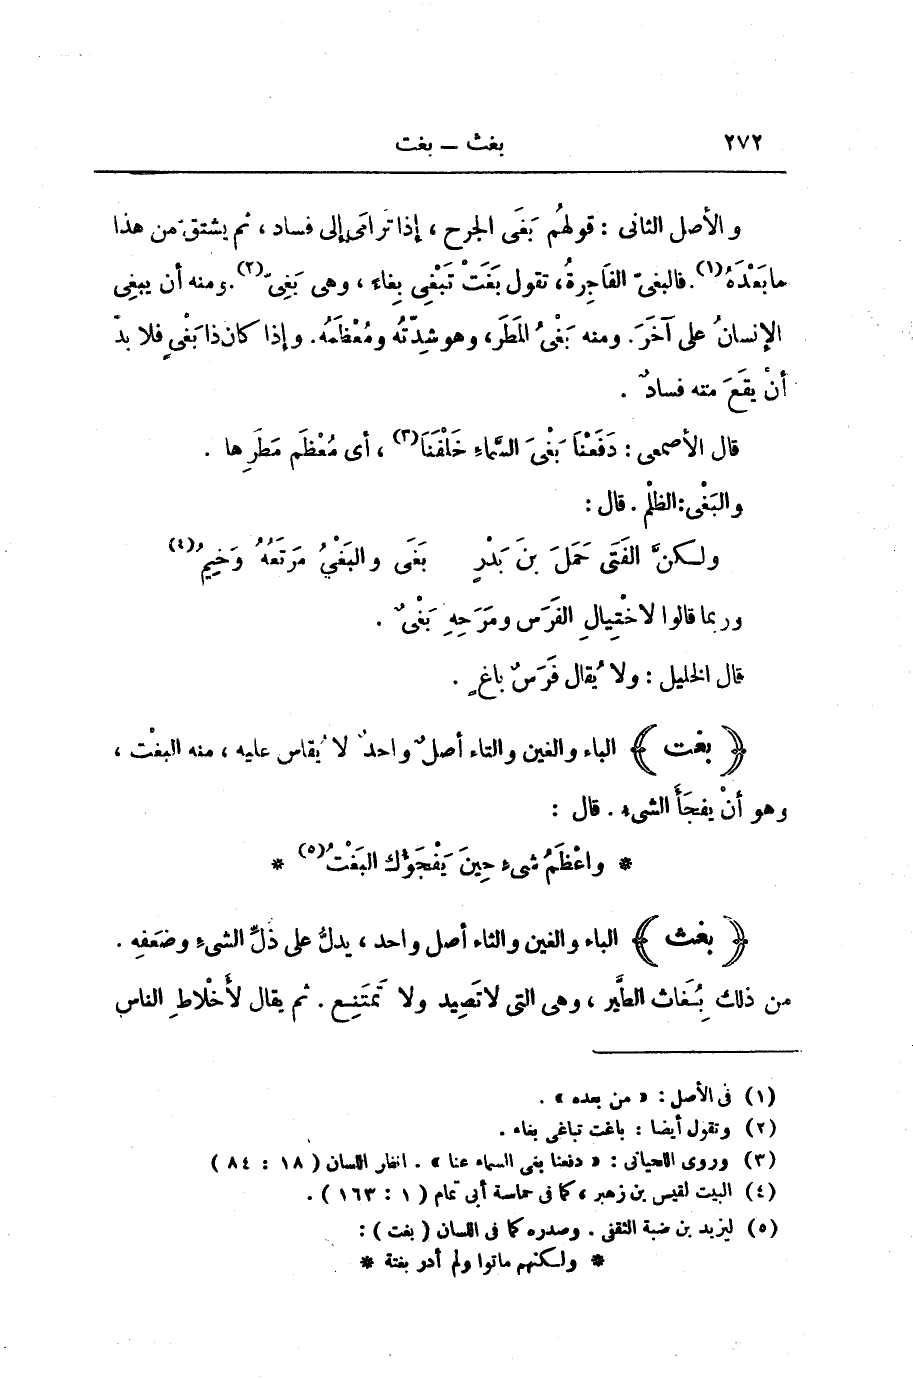 ٢٧٢ بغث — بغت
والأصل الثانى : قولهُم بَغَى الجرح ، إذا تَرامَى إلى فساد ، ثم يشتقّ من هذا
ما بَعْدَهُ(١). فالبغىّ الفَاجِرةُ، تقول بَغَتْ تَبْغِى بِغاء ، وهى بَغِىّ(٢). ومنه أن يبغِى
الإنسانُ على آخَرَ. ومنه بَغْىُ المَطَر، وهو شدِّتُه ومُعْظَمُه. وإذا كان ذا بَغْىٍ فلا بدّ
أنْ يقَعَ منه فسادٌ .
قال الأصمعى : دَفَعْنَا بَغْىَ السَّماءِ خَلْفَنَا(٣) ، أى مُعْظَم مَطَرِها .
والبَغْى: الظلْم . قال :
ولـكنَّ الفَتَى حَمَلَ بنَ بَدْرٍ بَغَى والبَغْيُ مَرْتَعُهُ وَخيِمُ(٤)
وربما قالوا لاخْتِيالِ الفَرَسِ ومَرَحِهِ بَغْىٌ .
قال الخليل : ولا يُقال فَرَسٌ باغٍ .
﴿ بغت ﴾ الباء والغين والتاء أصلٌ واحدٌ لا يُقاس عليه ، منه البغْت ،
وهو أنْ يفجَأَ الشىء . قال :
* واعْظَمُ شىءٍ حِينَ يَفْجَؤُك البَغْتُ(٥) *
﴿ بغث ﴾ الباء والغين والثاء أصل واحد ، يدلُّ على ذُلِّ الشىءِ وضَعَفِه .
من ذلك بِـُغَاث الطَّير ، وهى التى لا تَصِيد ولا تَمتَنِـع . ثم يقال لأَخْلاطِ الناس
(١) فى الأصل : « من بعده » .
(٢) وتقول أيضا : باغت تباغى بغاء .
(٣) وروى اللحيانى : « دفعنا بغى السماء عنا » . انظر اللسان ( ١٨ : ٨٤ )
(٤) البيت لقيس بن زهير ، كما فى حماسة أبى تمام ( ١ : ١٦٣ ) .
(٥) ليزيد بن ضبة الثقفى . وصدره كما فى اللسان ( بغت ) :
* ولـكنهم ماتوا ولم أدر بغتة *